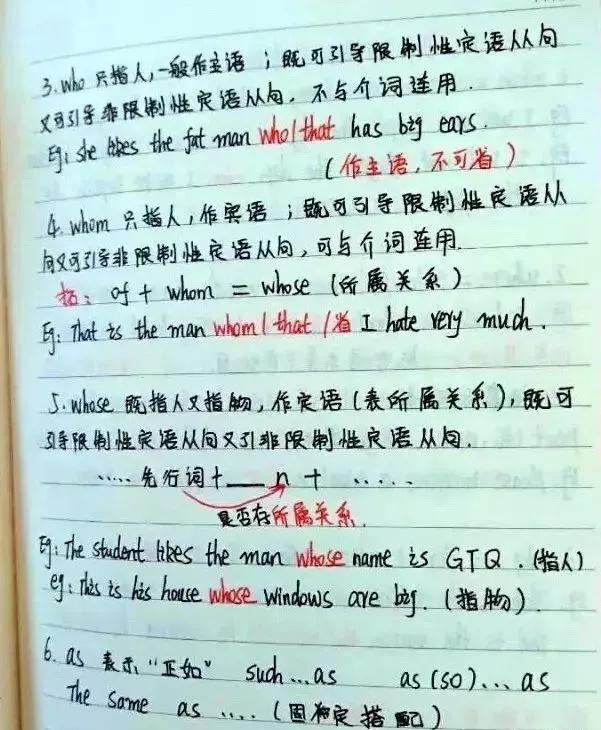 3. who 只指人,一般作主语 ;既可引导限制性定语从句
又可引导非限制性定语从句,不与介词连用.
Eg: she likes the fat man who/that has big ears.
(作主语,不可省)
4. whom 只指人,作宾语 ;既可引导限制性定语从
句又可引导非限制性定语从句,可与介词连用.
括: of + whom = whose (所属关系)
Eg: That is the man whom/that/省 I hate very much.
5. whose 既指人又指物,作定语(表所属关系),既可
引导限制性定语从句又引非限制性定语从句.
..... 先行词 + ___ n + .....
是否存所属关系.
Eg: The student likes the man whose name is GTQ. (指人)
eg: this is his house whose windows are big. (指物).
6. as 表示"正如" such...as as (so)...as
The same as .... (固定搭配)